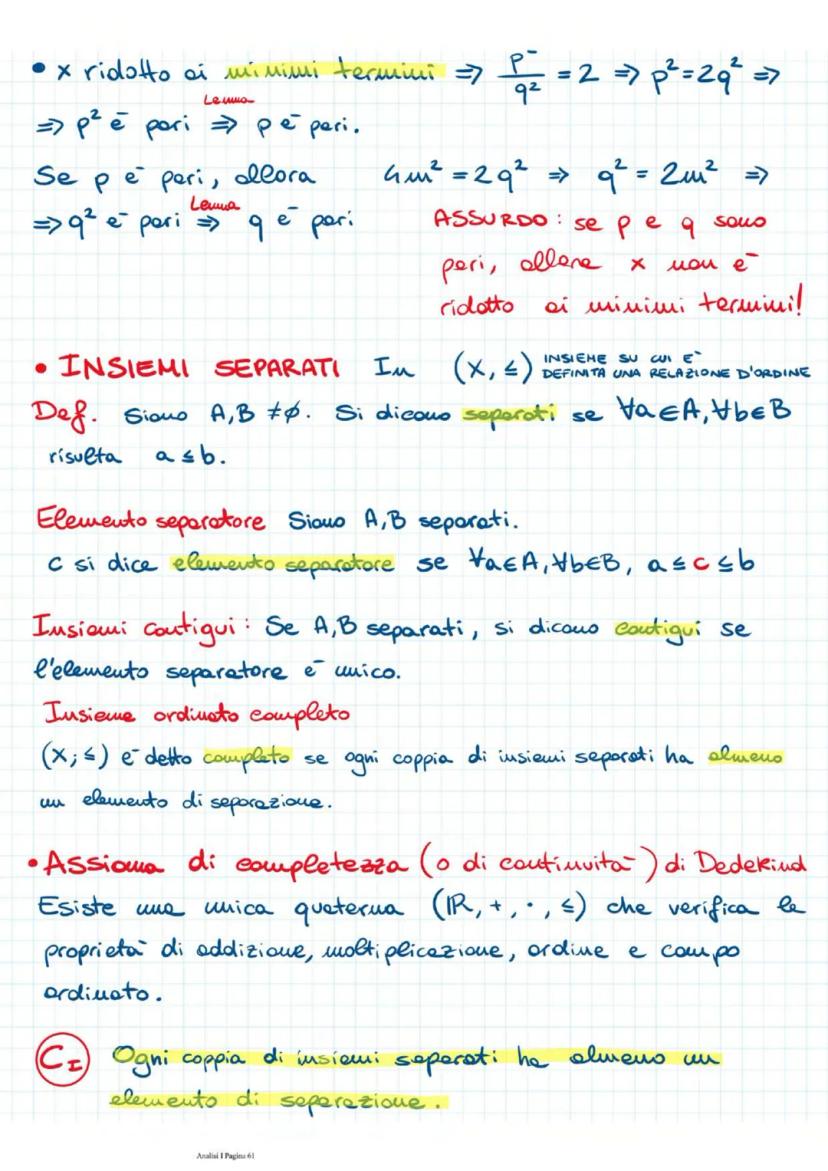 • x ridotto ai minimi termini ⇒ p²/q² = 2 ⇒ p² = 2q² ⇒
Lemma
⇒ p² è pari ⇒ p è pari.
Se p è pari, allora 4m² = 2q² ⇒ q² = 2m² ⇒
Lemma
⇒ q² è pari ⇒ q è pari
ASSURDO: se p e q sono
pari, allora x non è
ridotto ai minimi termini!
• INSIEMI SEPARATI In (X, ≤) INSIEME SU CUI E`
DEFINITA UNA RELAZIONE D'ORDINE
Def. Siano A,B ≠∅. Si dicono separati se ∀a∈A, ∀b∈B
risulta a ≤ b.
Elemento separatore Siano A,B separati.
C si dice elemento separatore se ∀a∈A, ∀b∈B, a ≤ c ≤ b
Insiemi contigui: Se A,B separati, si dicono contigui se
l'elemento separatore è unico.
Insieme ordinato completo
(X; ≤) è detto completo se ogni coppia di insiemi separati ha almeno
un elemento di separazione.
• Assioma di completezza (o di continuità) di Dedekind
Esiste una unica quaterna (ℝ, +, ·, ≤) che verifica le
proprietà di addizione, moltiplicazione, ordine e campo
ordinato.
C_I Ogni coppia di insiemi separati ha almeno un
elemento di separazione.
Analisi I Pagina 61